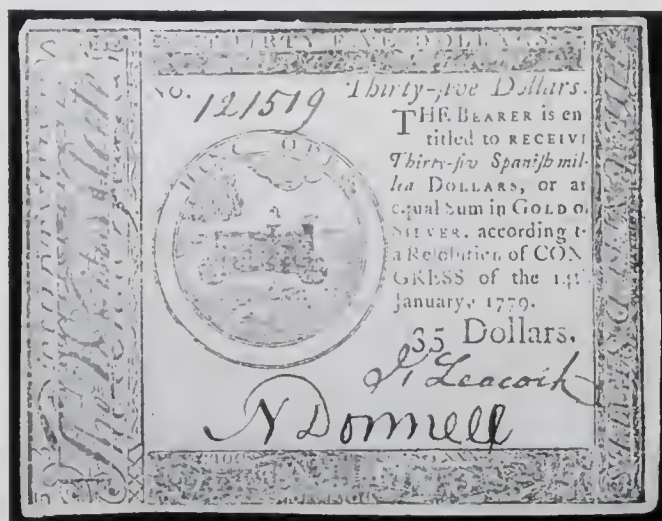 THIRTY FIVE DOLLARS.
No. 121519
Thirty-five Dollars.
THE BEARER is en
titled to RECEIVE
Thirty-fiv Spanish mil-
led DOLLARS, or an
equal Sum in GOLD or
SILVER, according to
a Resolution of CON
GRESS of the 14th
January, 1779.
35 Dollars.
J. Leacock
N Donnell
HOC OPUS